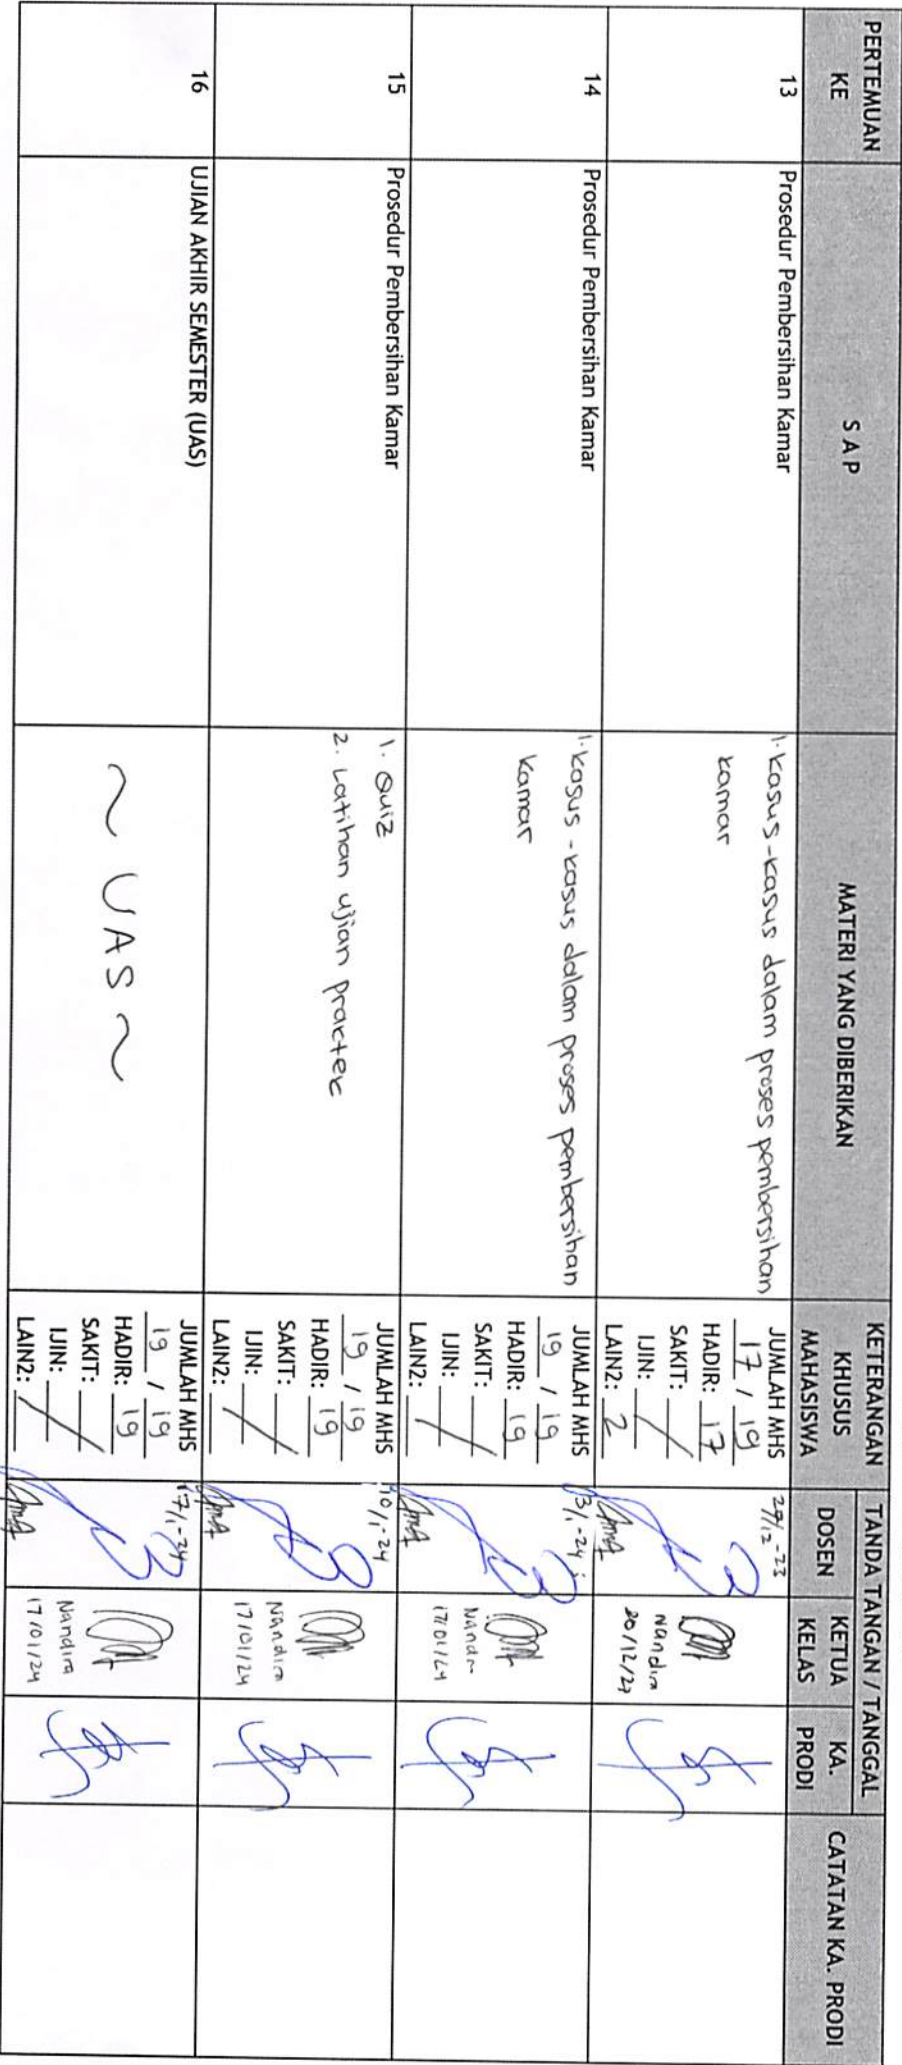 PERTEMUAN KE
S A P
MATERI YANG DIBERIKAN
KETERANGAN KHUSUS MAHASISWA
TANDA TANGAN / TANGGAL
DOSEN
KETUA KELAS
KA. PRODI
CATATAN KA. PRODI
13
Prosedur Pembersihan Kamar
1. kasus-kasus dalam proses pembersihan
kamar
JUMLAH MHS
17 / 19
HADIR: 17
SAKIT:
IJIN:
LAIN2: 2
27/12 -23
Nandira
20/12/23
14
Prosedur Pembersihan Kamar
1. kasus - kasus dalam proses pembersihan
kamar
JUMLAH MHS
19 / 19
HADIR: 19
SAKIT:
IJIN:
LAIN2:
3/1-24
17/01/24
15
Prosedur Pembersihan Kamar
1. Quiz
2. Latihan ujian praktek
JUMLAH MHS
19 / 19
HADIR: 19
SAKIT:
IJIN:
LAIN2:
10/1-24
Nandira
17/01/24
16
UJIAN AKHIR SEMESTER (UAS)
~ UAS ~
JUMLAH MHS
19 / 19
HADIR: 19
SAKIT:
IJIN:
LAIN2:
17/1-24
Nandira
17/01/24